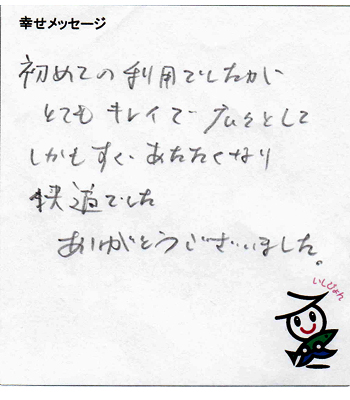 幸せメッセージ
初めての利用でしたが
とても キレイで 広々として
しかもすぐ あたたくなり
快適でした
ありがとうございました。
いしぴょん